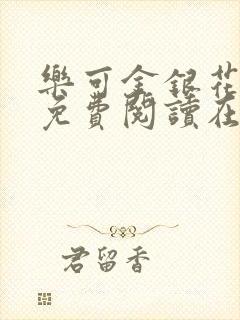 樂可金銀花
免費閱讀在
君留香